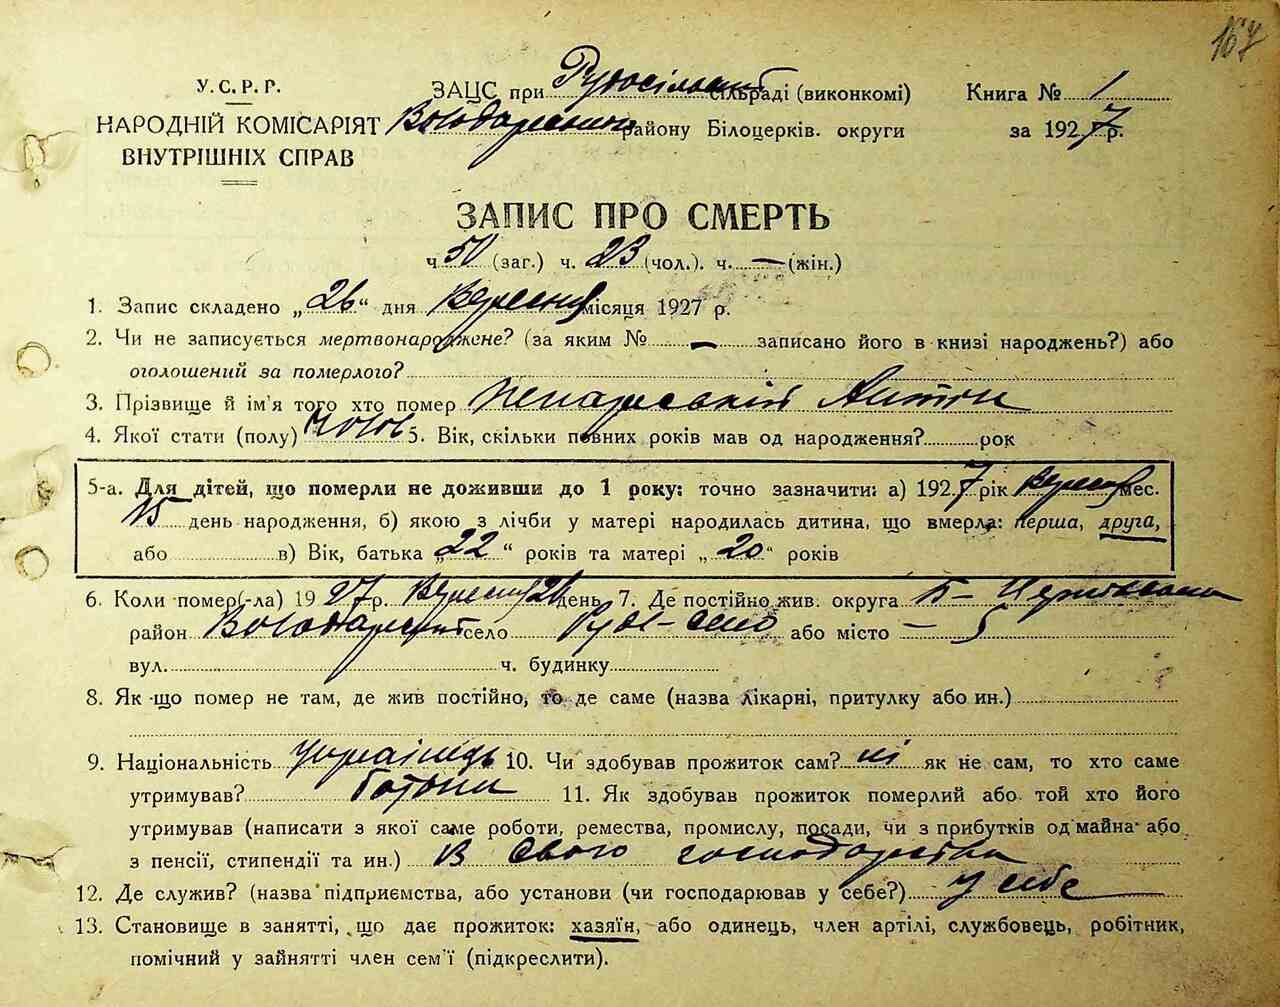 167
У.С.Р.Р.
НАРОДНІЙ КОМІСАРІЯТ
ВНУТРІШНІХ СПРАВ
ЗАЦС при сільраді (виконкомі)
району Білоцерків. округи
Книга № 1
за 1927 р.
ЗАПИС ПРО СМЕРТЬ
ч 50 (заг.) ч. 23 (чол.). ч. — (жін.)
1. Запис складено „26“ дня Вересня місяця 1927 р.
2. Чи не записується мертвонароджене? (за яким № — записано його в книзі народжень?) або
оголошений за померлого?
3. Прізвище й ім'я того хто помер Антін
4. Якої стати (полу) чолов 5. Вік, скільки повних років мав од народження? рок
5-а. Для дітей, що померли не доживши до 1 року: точно зазначити: а) 1927 рік Вересня мес.
15 день народження, б) якою з лічби у матері народилась дитина, що вмерла: перша, друга,
або в) Вік, батька „22“ років та матері „20“ років
6. Коли помер(-ла) 1927 р. Вересня 26 день 7. Де постійно жив. округа Б-Церківська
район Володарський село Руде-Село або місто —
вул. ч. будинку
8. Як-що помер не там, де жив постійно, то де саме (назва лікарні, притулку або ин.)
9. Національність українець 10. Чи здобував прожиток сам? ні як не сам, то хто саме
утримував? батьки 11. Як здобував прожиток померлий або той хто його
утримував (написати з якої саме роботи, ремества, промислу, посади, чи з прибутків од майна або
з пенсії, стипендії та ин.) з свого господарства
12. Де служив? (назва підприємства, або установи (чи господарював у себе?) у себе
13. Становище в занятті, що дає прожиток: хазяїн, або одинець, член артілі, службовець, робітник,
помічний у зайнятті член сем'ї (підкреслити).